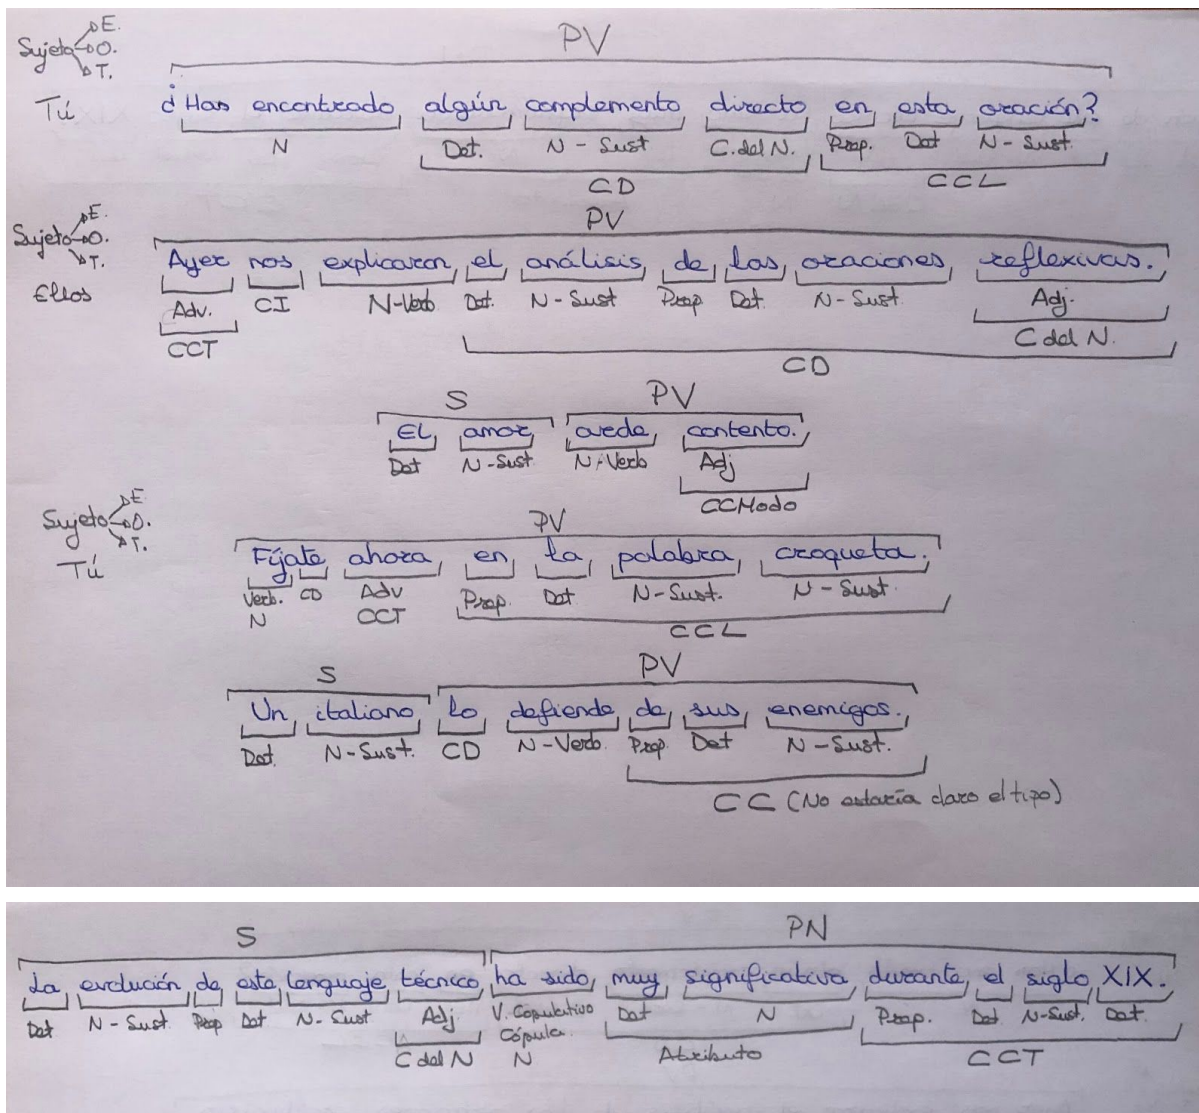 Sujeto E. O. T. PV
Tú ¿Has encontrado algún complemento directo en esta oración?
N Det. N-Sust C.del N. Prep. Det N-Sust.
CD CCL
Sujeto E. O. T. PV
Ellos Ayer nos explicaron el análisis de las oraciones reflexivas.
Adv. CI N-Verb Det. N-Sust Prep Det. N-Sust. Adj.
CCT C del N.
CD
S PV
El amor arde contento.
Det N-Sust N-Verb Adj
CCModo
Sujeto E. O. T. PV
Tú Fíjate ahora en la palabra croqueta.
Verb. CD Adv Prep. Det N-Sust. N-Sust.
N CCT
CCL
S PV
Un italiano lo defiende de sus enemigos.
Det. N-Sust. CD N-Verb. Prep Det N-Sust.
CC (No estaría claro el tipo)
S PN
La evolución de este lenguaje técnico ha sido muy significativa durante el siglo XIX.
Det N-Sust. Prep Det N-Sust Adj. V. Copulativo Det N Prep. Det N-Sust. Det.
Cópula.
C del N N Atributo CCT